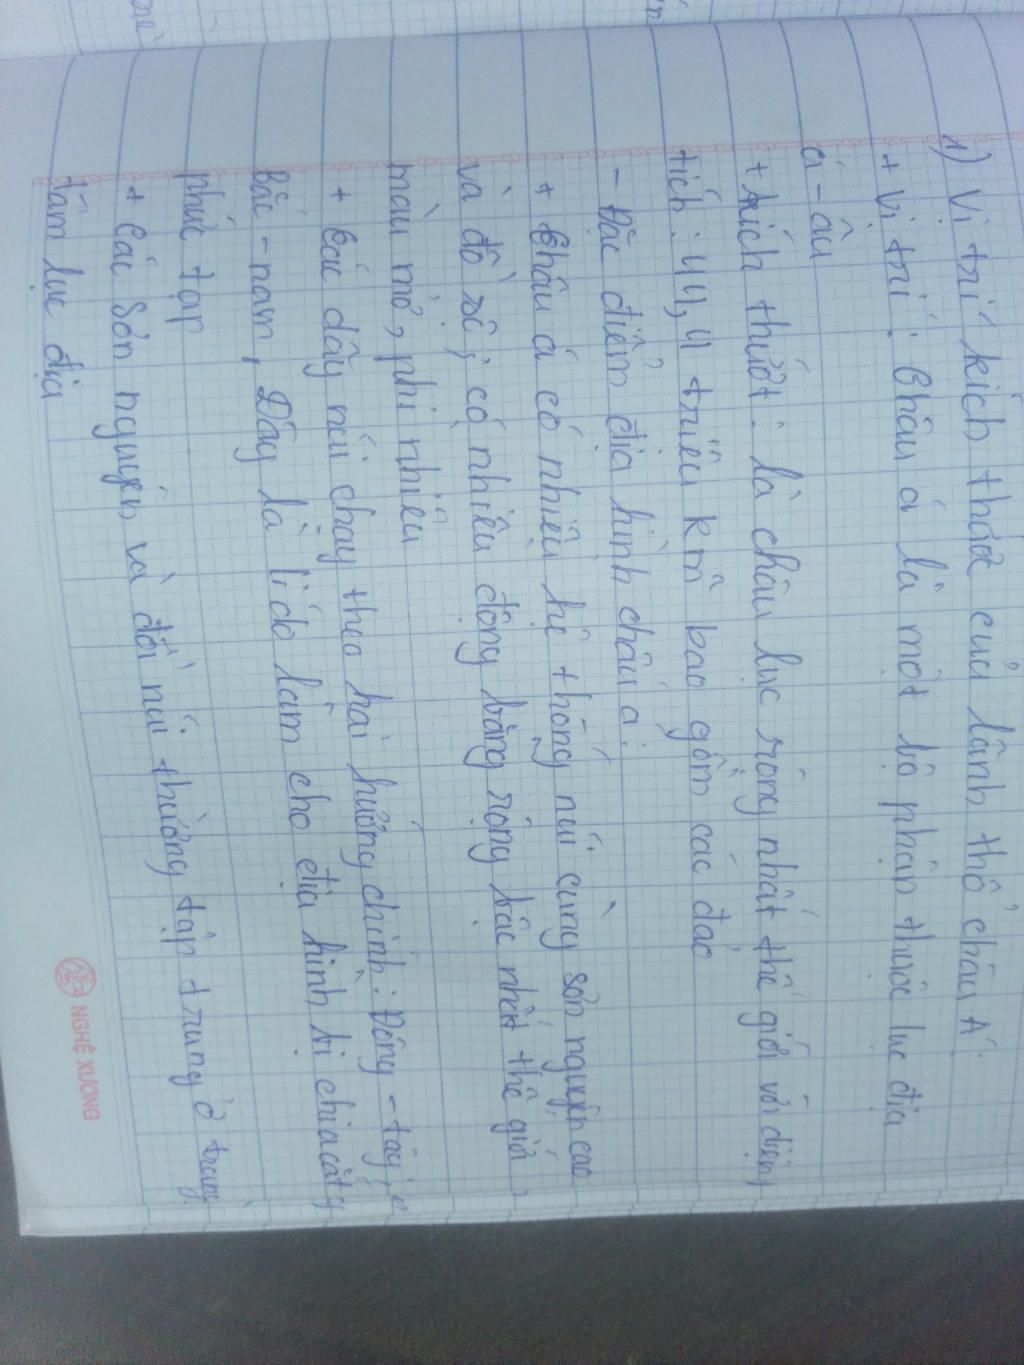 1) Vị trí kích thước của lãnh thổ châu Á.
+ Vị trí: Châu á là một bộ phận thuộc lục địa
á - âu
+ kích thướt: là châu lục rộng nhất thế giới với diện
tích: 44,4 triệu km² bao gồm các đảo
- Đặc điểm địa hình châu á:
+ Châu á có nhiều hệ thống núi cùng sơn nguyên cao
và đồ sộ; có nhiều đồng bằng rộng bậc nhất thế giới,
màu mỡ, phì nhiêu
+ Các dãy núi chạy theo hai hướng chính: Đông - tây,
Bắc - nam, Đây là lí do làm cho địa hình bị chia cắt
phức tạp
+ Các Sơn nguyên và đồi núi thường tập trung ở trung
tâm lục địa
NGHÊ XƯƠNG